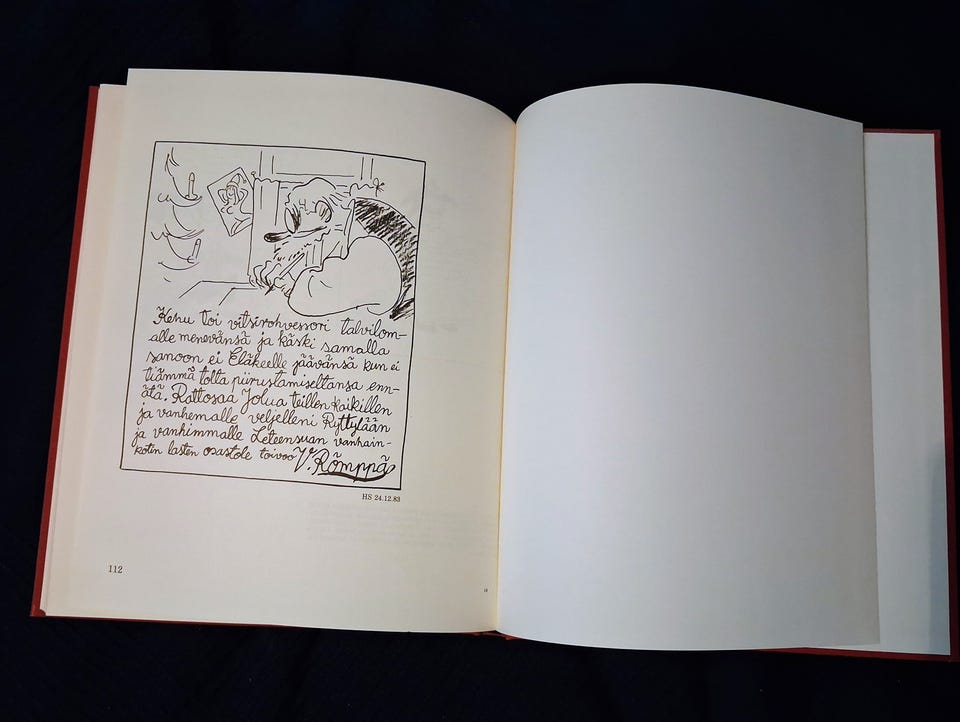 Kehu toi vitsirohvessori talvilom-
alle menevänsä ja käski samalla
sanoon ei Eläkeelle jäävänsä kun ei
tiämmä tolta piirustamiseltansa enn-
ätä. Rattosaa Jolua teillen kaikillen
ja vanhemalle veljelleni Ryttylään
ja vanhimmalle Leteensuan vanhain-
koten lasten osastole toivoo V. Römppä
HS 24.12.83
112